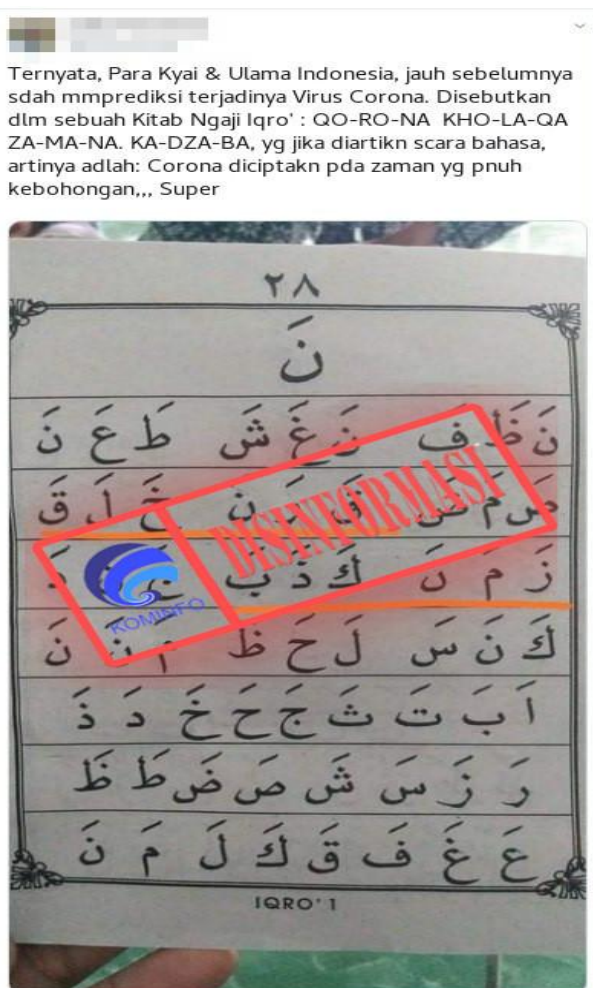 Ternyata, Para Kyai & Ulama Indonesia, jauh sebelumnya
sdah mmprediksi terjadinya Virus Corona. Disebutkan
dlm sebuah Kitab Ngaji Iqro' : QO-RO-NA KHO-LA-QA
ZA-MA-NA. KA-DZA-BA, yg jika diartikn scara bahasa,
artinya adlah: Corona diciptakn pda zaman yg pnuh
kebohongan,,, Super
٢٨
نَ
نَ ظَ فَ نَ غَ شَ طَ عَ نَ
صَ مَ قَ رَ نَ خَ لَ قَ
زَ مَ نَ كَ ذَ بَ
كَ نَ سَ لَ حَ ظَ مَ نَ نَ
اَ بَ تَ ثَ جَ حَ خَ دَ ذَ
رَ زَ سَ شَ صَ ضَ طَ ظَ
عَ غَ فَ قَ كَ لَ مَ نَ
IQRO' 1
KOMINFO
DISINFORMASI